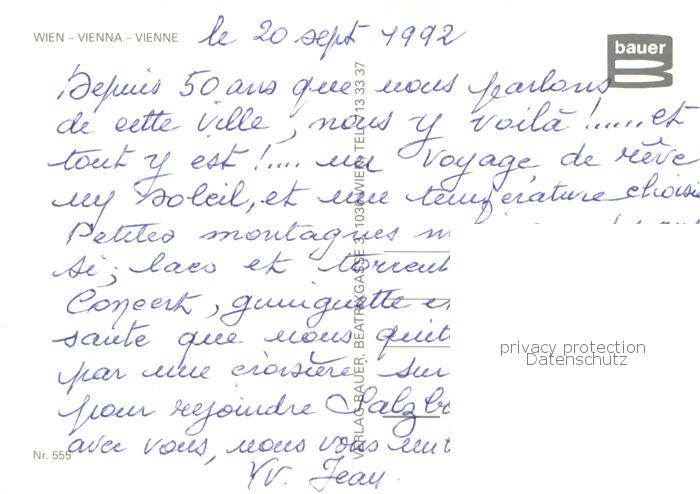 WIEN – VIENNA – VIENNE
le 20 sept 1992
bauer
Depuis 50 ans que nous parlons
de cette ville, nous y voilà !......et
tout y est !.... un voyage de rêve
un soleil, et une température choisie
Petites montagnes
si; lacs et torrent
Concert, guinguette
sante que nous quit
par une croisière sur
pour rejoindre Salzbo
avec vous, nous vous
Yv. Jean
Nr. 555
VERLAG BAUER, BEATRIXGASSE 3, 1030 WIEN, TEL. 713 33 37
privacy protection
Datenschutz